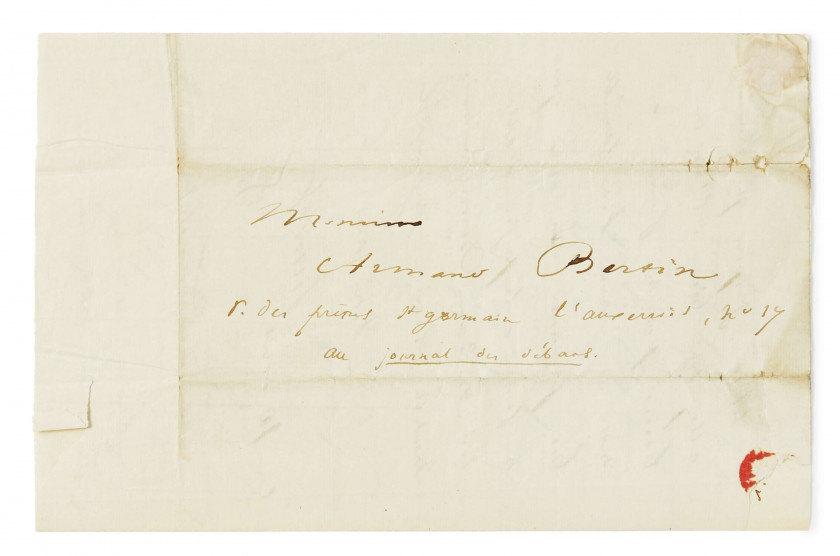 Monsieur
Armand Bertin
r. des prêtres St germain l'auxerrois, no 17
au journal des débats.